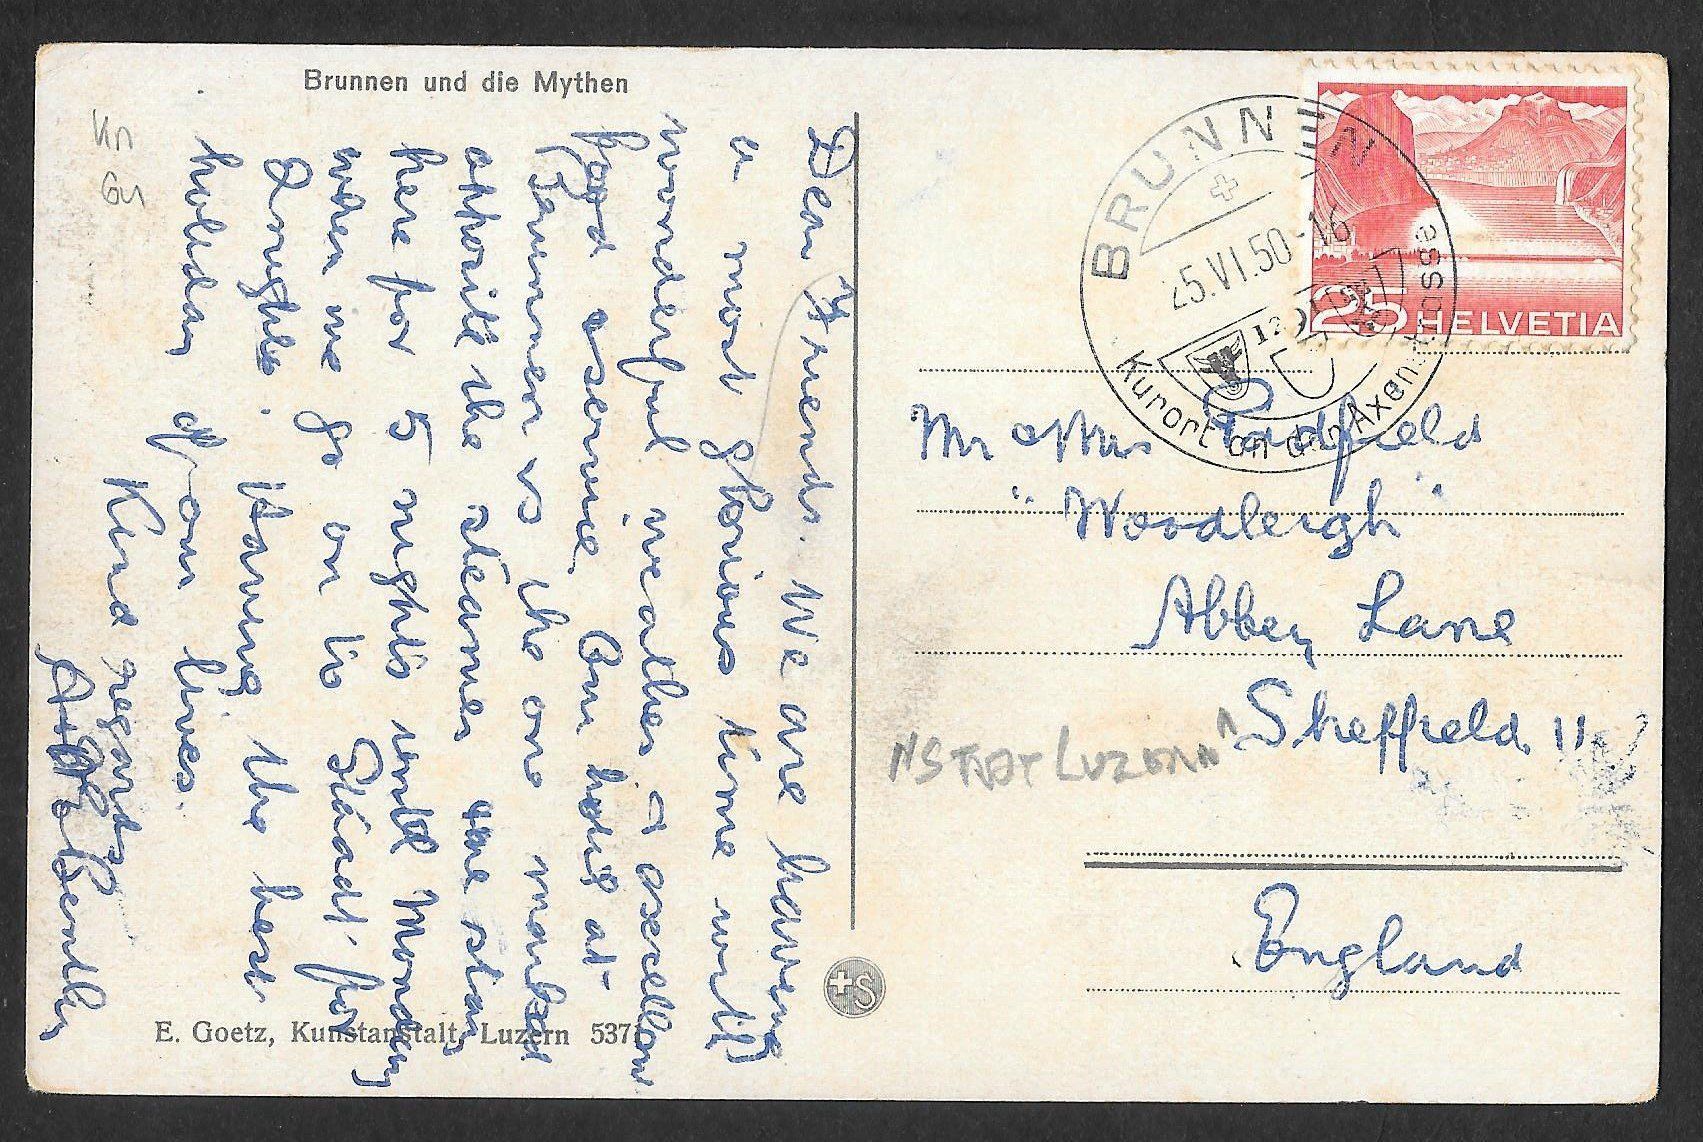 Brunnen und die Mythen
Dear Friends. We are having
a most glorious time with
wonderful weather + excellent
food & service. Our hotel at
Brunnen is the one marked
opposite the steamer we stay
here for 5 nights until Monday
when we go on to Staad for
2 nights. Having the best
holiday of our lives.
Kind regards
Bentley
E. Goetz, Kunstanstalt, Luzern 5371
+S
BRUNNEN
25.VI.50-16
Kurort an der Axenstrasse
25 HELVETIA
Mr & Mrs Padfield
"Woodleigh"
Abbey Lane
Sheffield 11
England
"STADT LUZERN"